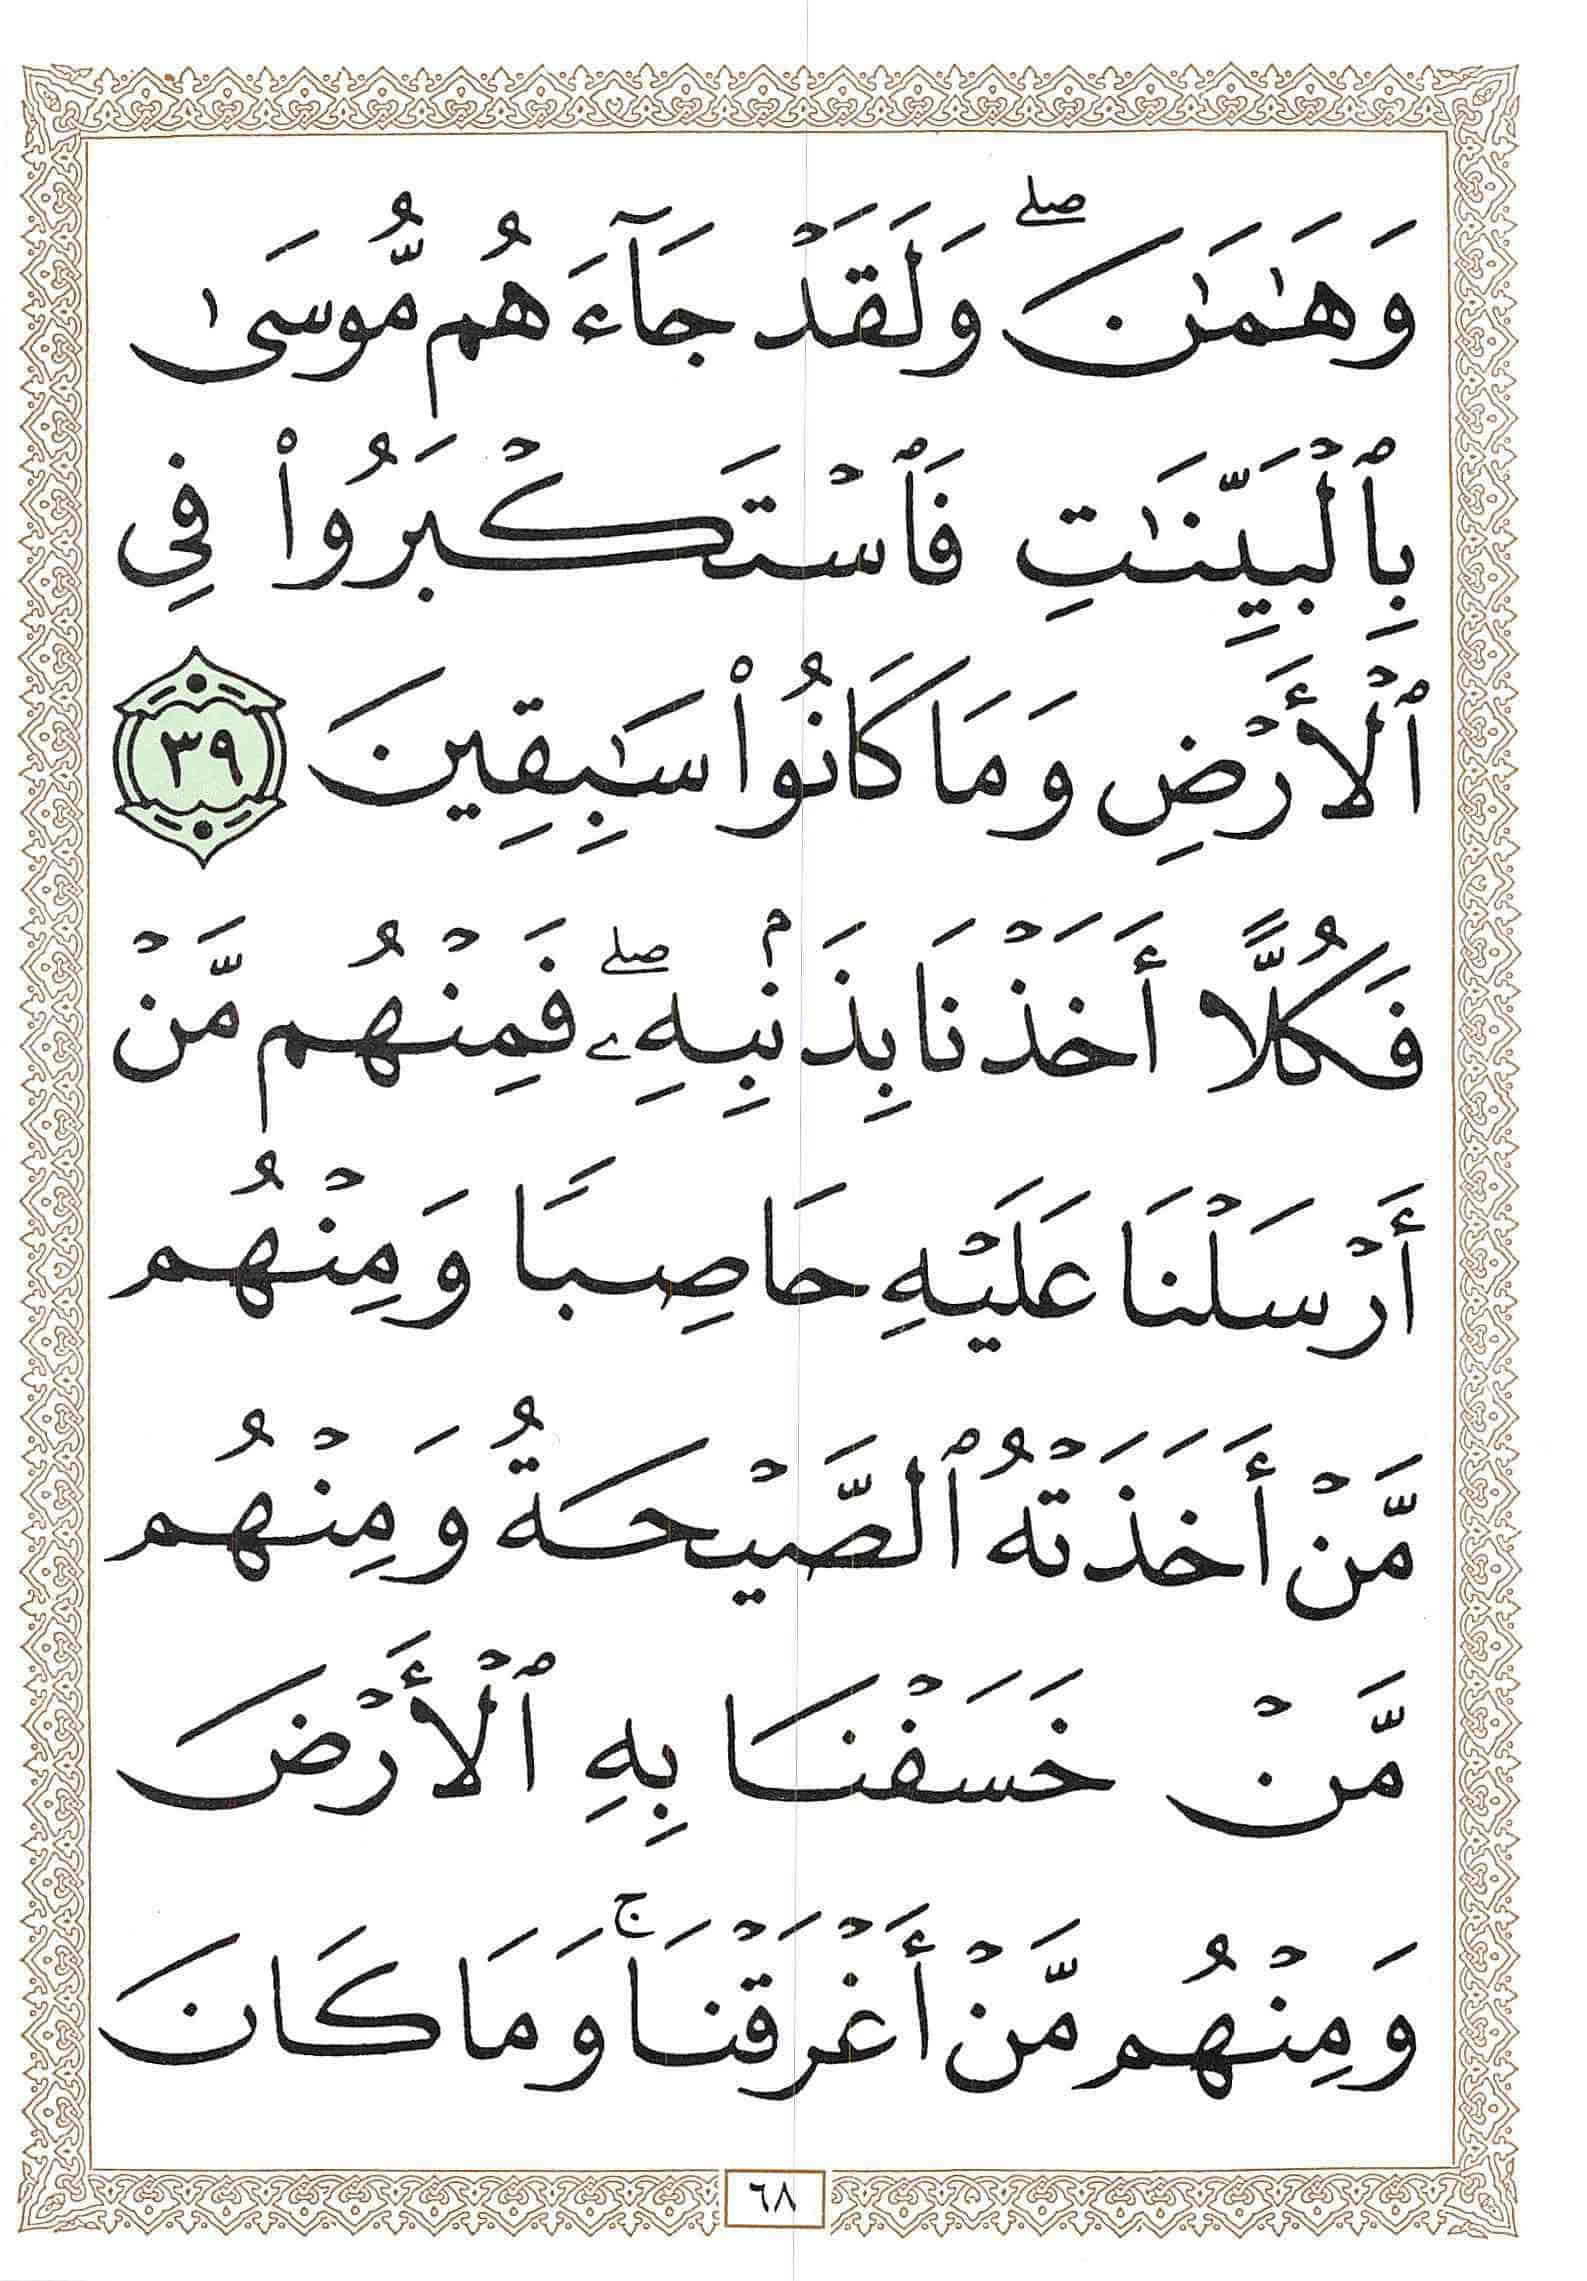 وَهَٰمَٰنَۖ وَلَقَدۡ جَآءَهُم مُّوسَىٰ
بِٱلۡبَيِّنَٰتِ فَٱسۡتَكۡبَرُواْ فِي
ٱلۡأَرۡضِ وَمَا كَانُواْ سَٰبِقِينَ ٣٩
فَكُلًّا أَخَذۡنَا بِذَنۢبِهِۦۖ فَمِنۡهُم مَّنۡ
أَرۡسَلۡنَا عَلَيۡهِ حَاصِبٗا وَمِنۡهُم
مَّنۡ أَخَذَتۡهُ ٱلصَّيۡحَةُ وَمِنۡهُم
مَّنۡ خَسَفۡنَا بِهِ ٱلۡأَرۡضَ
وَمِنۡهُم مَّنۡ أَغۡرَقۡنَاۚ وَمَا كَانَ
٦٨